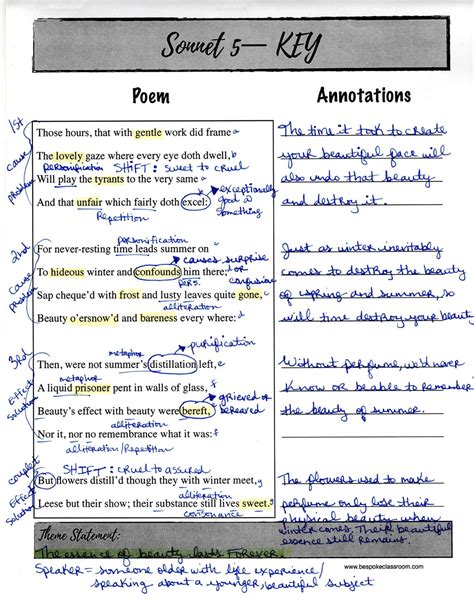 Sonnet 5— KEY
Poem
Annotations
1st
cause
problem
Those hours, that with gentle work did frame a
The lovely gaze where every eye doth dwell, b
personification SHIFT: sweet to cruel
Will play the tyrants to the very same a
And that unfair which fairly doth excel; b
Repetition
exceptionally
good @
something
The time it took to create
your beautiful face will
also undo that beauty
and destroy it.
2nd
Cause
Problem
personification
For never-resting time leads summer on c
causes surprise
or
confusion
To hideous winter and confounds him there; d
pers.
Sap cheque'd with frost and lusty leaves quite gone, c
alliteration
Beauty o'ersnow'd and bareness every where: d
Just as winter inevitably
comes to destroy the beauty
of spring and summer, so
will time destroy your beauty
3rd
Effect
Solution
purification
metaphor
Then, were not summer's distillation left, e
metaphor
A liquid prisoner pent in walls of glass, f
grieved or
bereaved
Beauty's effect with beauty were bereft, e
alliteration
Nor it, nor no remembrance what it was: f
alliteration/Repetition
Without perfume, we'd never
know or be able to remember
the beauty of summer.
couplet
Effect
Solution
SHIFT: cruel to assured
But flowers distill'd though they with winter meet, g
alliteration
Leese but their show; their substance still lives sweet. g
consonance
The flowers used to make
perfume only lose their
physical beauty when
winter comes. Their beautiful
essence still remains.
Theme Statement:
The essence of beauty lasts forever.
www.bespokeclassroom.com
Speaker = someone older with life experience/
speaking about a younger, beautiful subject